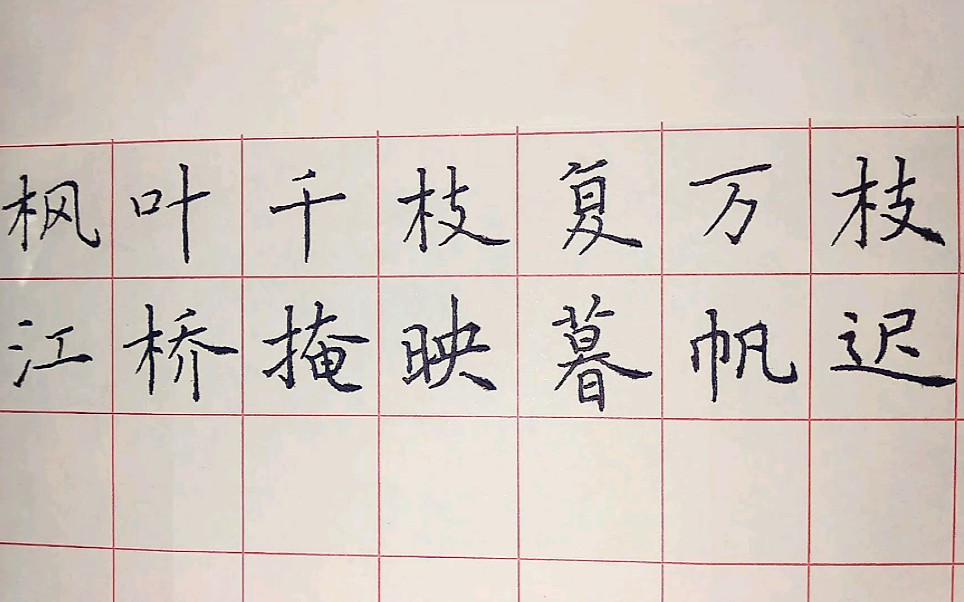 枫叶千枝复万枝
江桥掩映暮帆迟